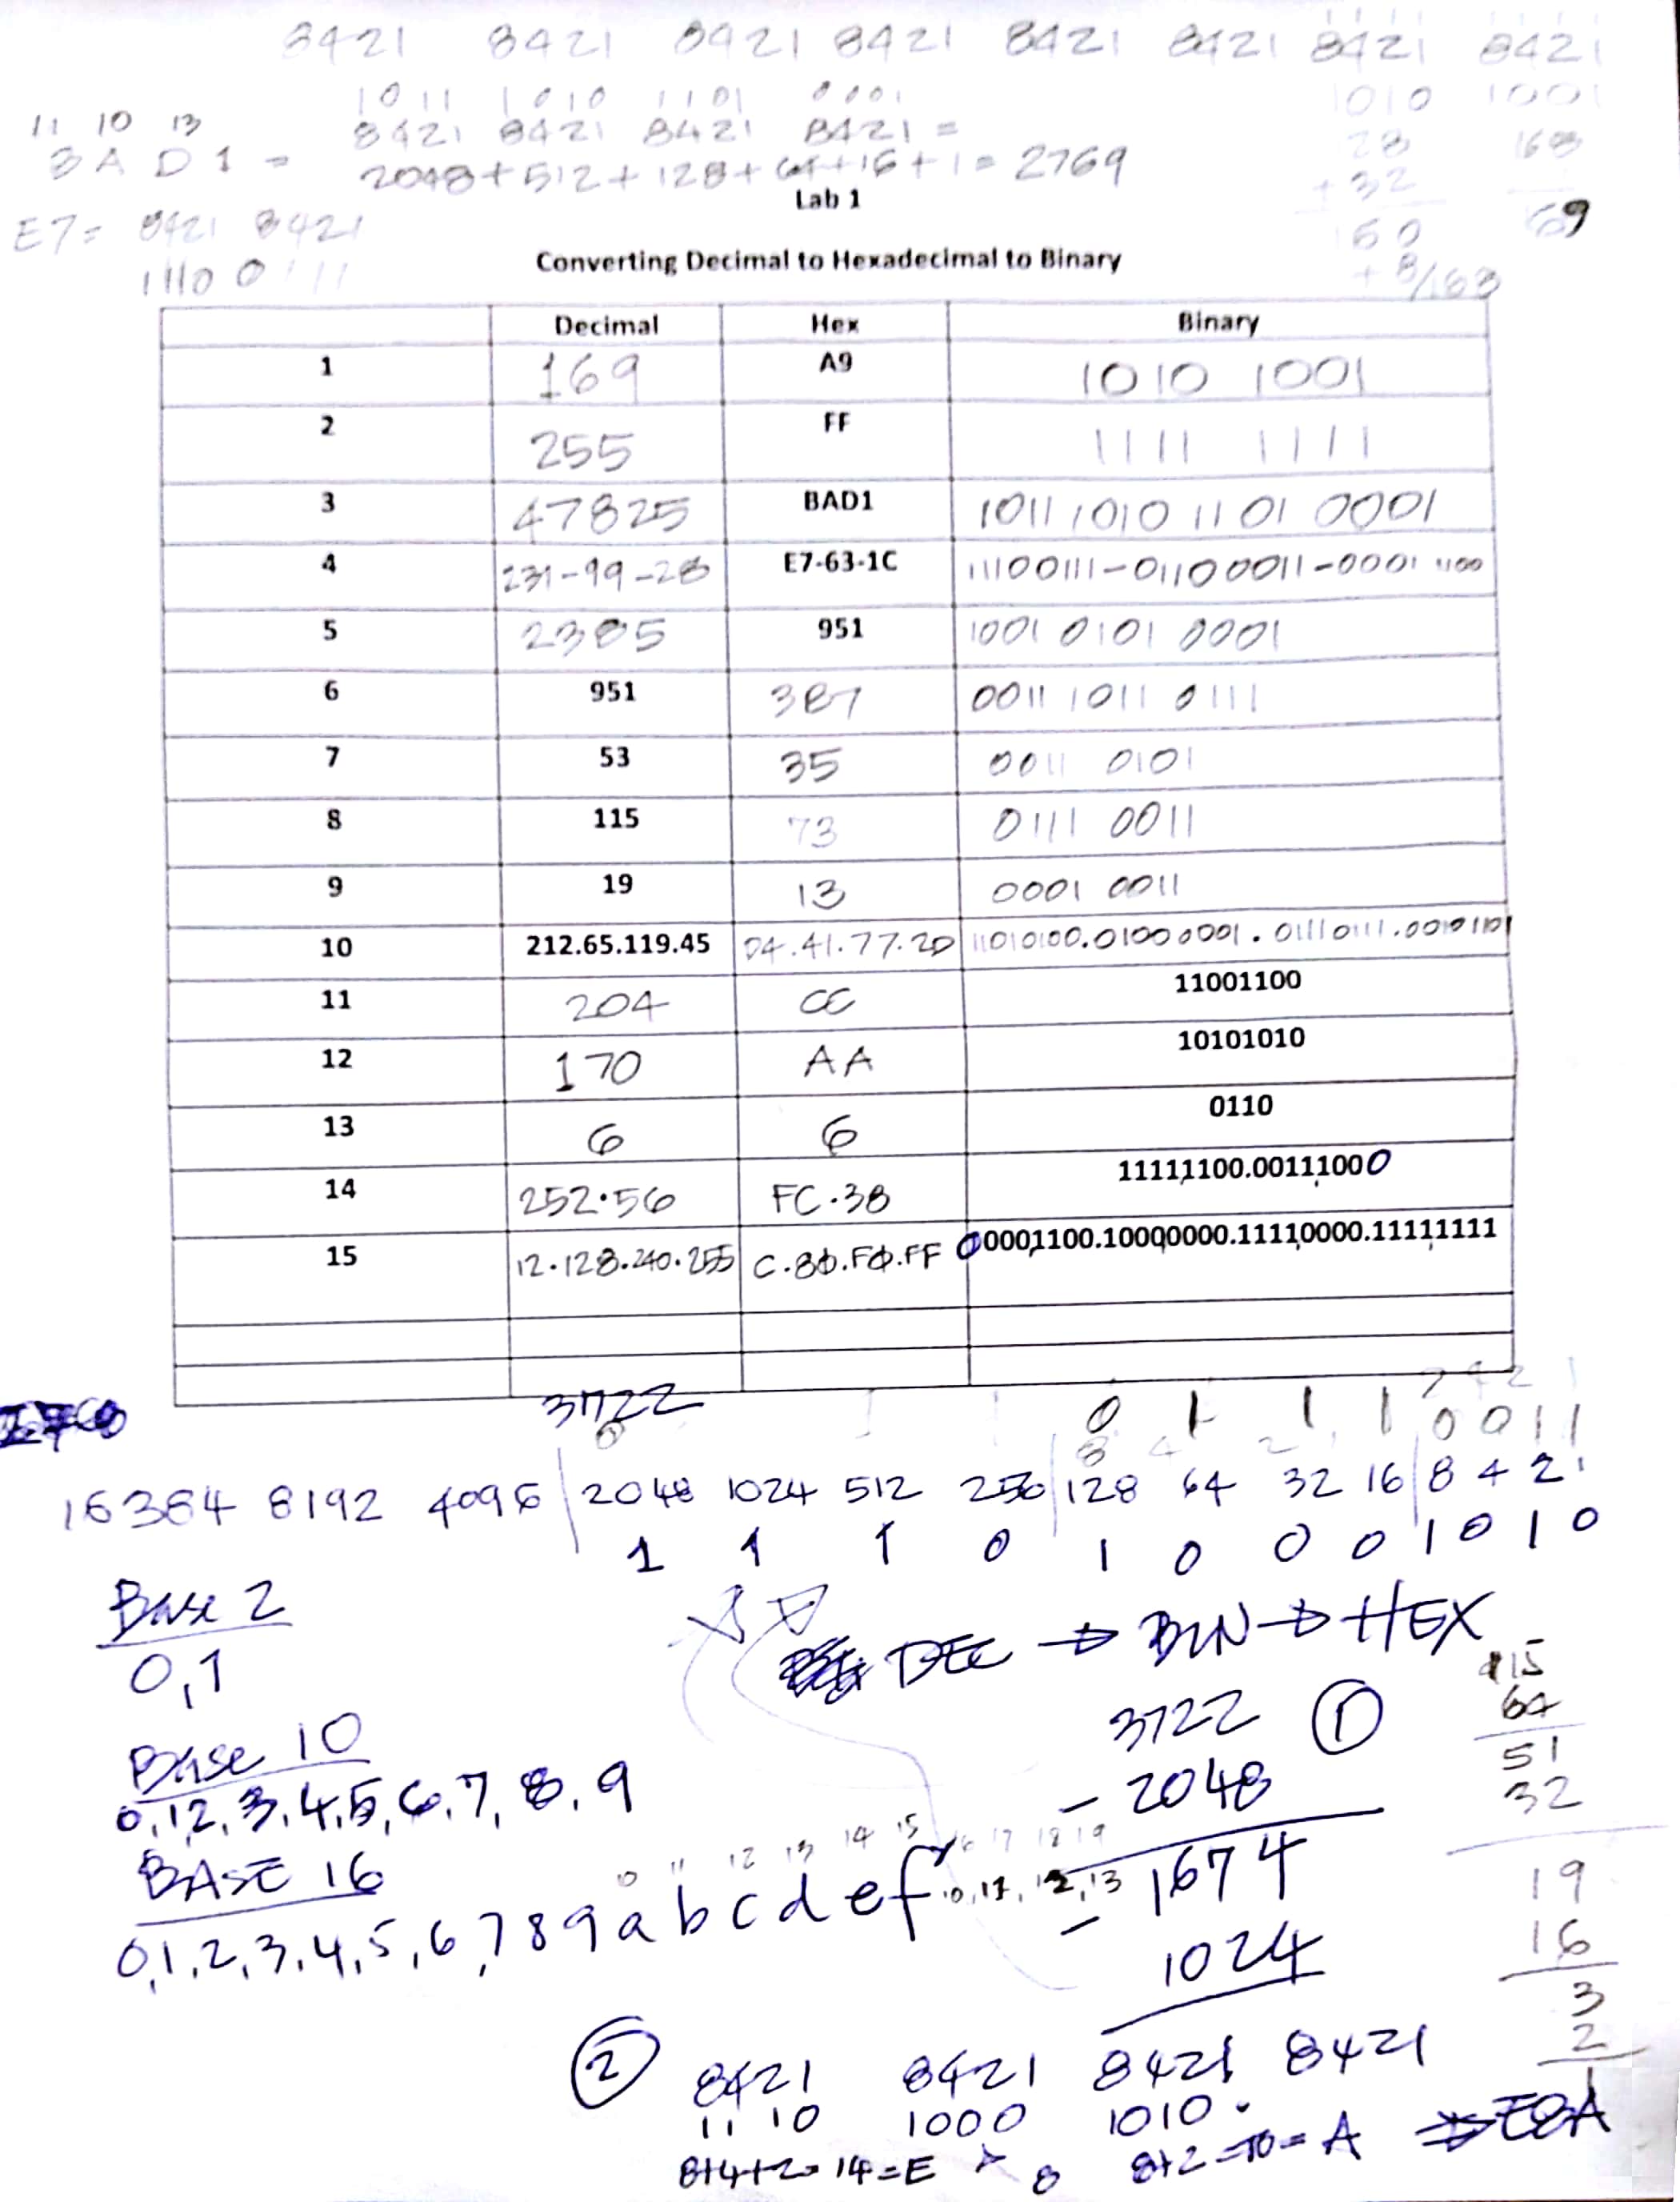 8421 8421 8421 8421 8421 8421 8421 8421
1011 1010 1101 0001
1010 1001
11 10 13
8421 8421 8421 8421 =
BAD1 =
2048+512+128+64+16+1= 2769
28 168
+32
Lab 1
E7= 8421 8421
60 69
1110 0111
Converting Decimal to Hexadecimal to Binary
+8/168
Decimal Hex Binary
1 169 A9 1010 1001
2 255 FF 1111 1111
3 47825 BAD1 1011 1010 1101 0001
4 231-99-28 E7-63-1C 11100111-01100011-0001 1100
5 2385 951 1001 0101 0001
6 951 3B7 0011 1011 0111
7 53 35 0011 0101
8 115 73 0111 0011
9 19 13 0001 0011
10 212.65.119.45 D4.41.77.2D 11010100.01000001.01110111.00101101
11 204 CC 11001100
12 170 AA 10101010
13 6 6 0110
14 252.56 FC.38 11111100.00111000
15 12.128.240.255 C.80.F0.FF 00001100.10000000.11110000.11111111
3722
0 1 1 1 0 0 1 1
8 4 2 1
16384 8192 4096 2048 1024 512 256 128 64 32 16 8 4 2 1
1 1 1 0 1 0 0 0 1 0 1 0
Base 2
0,1
DEC → BIN → HEX
3722 ①
- 2048
1674
- 1024
115
64
51
32
19
16
3
2
1
Base 10
0,1,2,3,4,5,6,7,8,9
BASE 16
10 11 12 13 14 15 16 17 18 19
0,1,2,3,4,5,6,7 8 9 a b c d e f 10,11,12,13
② 8421 8421 8421 8421
1110 1000 1010
8+4+2=14=E 8 8+2=10=A ⇒ E8A